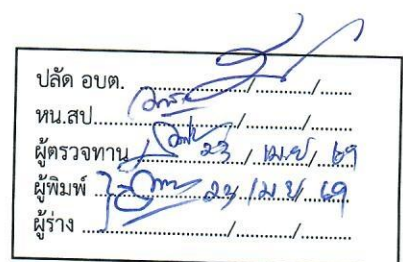 ปลัด อบต. ................/........../.......
หน.สป................../........../.......
ผู้ตรวจทาน 23 / เม.ย/ 69
ผู้พิมพ์ 23 / เม.ย/ 69
ผู้ร่าง ................../........../.......